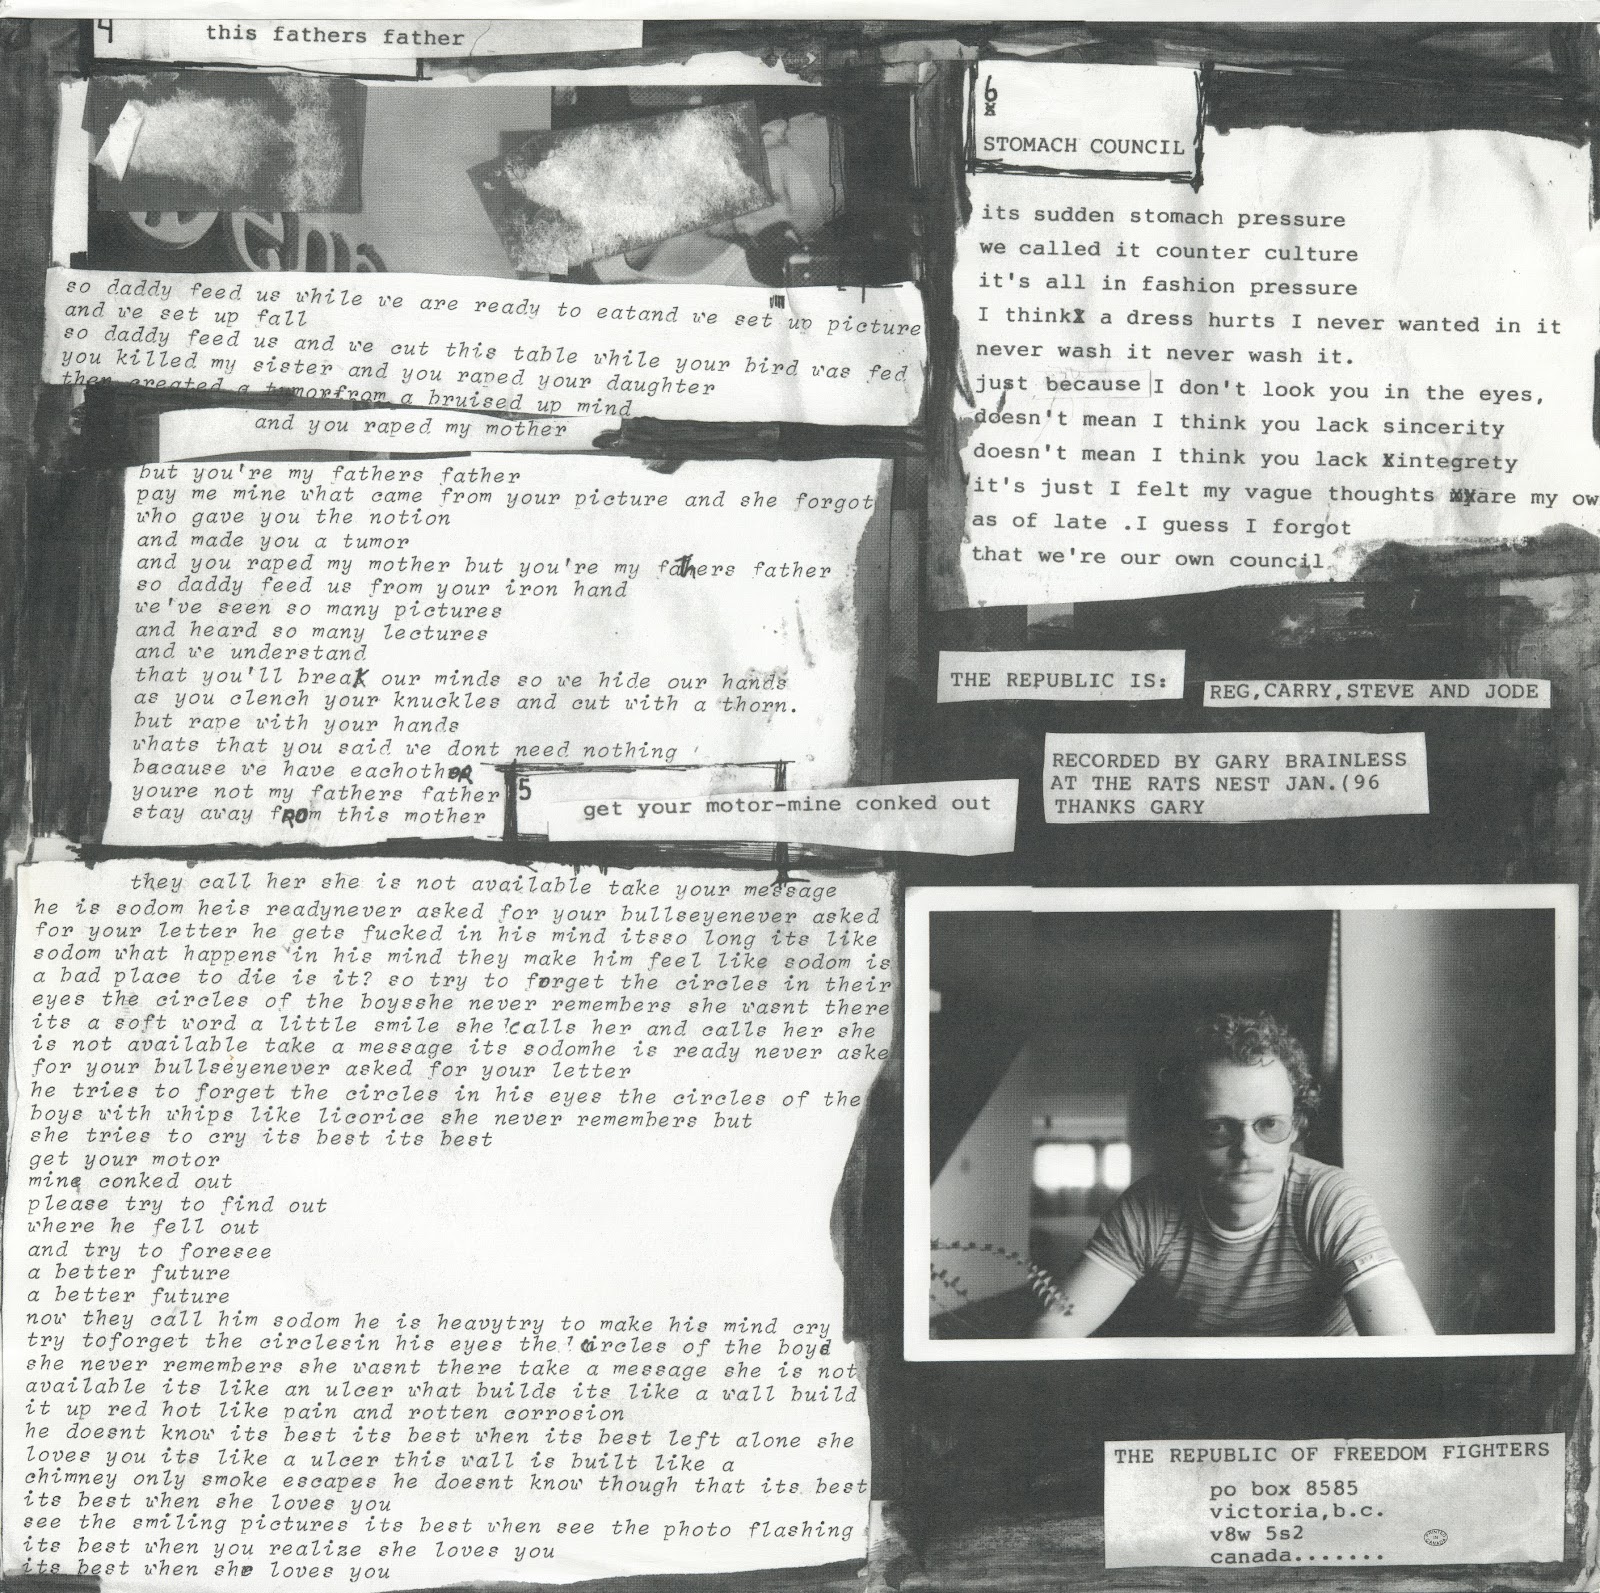 4
this fathers father
so daddy feed us while we are ready to eatand we set up picture
and we set up fall
so daddy feed us and we cut this table while your bird was fed
you killed my sister and you raped your daughter
then created a tumorfrom a bruised up mind
and you raped my mother
but you're my fathers father
pay me mine what came from your picture and she forgot
who gave you the notion
and made you a tumor
and you raped my mother but you're my fathers father
so daddy feed us from your iron hand
we've seen so many pictures
and heard so many lectures
and we understand
that you'll break our minds so we hide our hands
as you clench your knuckles and cut with a thorn.
but rape with your hands
whats that you said we dont need nothing
because we have eachothER
youre not my fathers father
stay away fROm this mother
5
get your motor-mine conked out
they call her she is not available take your message
he is sodom heis readynever asked for your bullseyenever asked
for your letter he gets fucked in his mind itsso long its like
sodom what happens in his mind they make him feel like sodom is
a bad place to die is it? so try to forget the circles in their
eyes the circles of the boysshe never remembers she wasnt there
its a soft word a little smile she calls her and calls her she
is not available take a message its sodomhe is ready never aske
for your bullseyenever asked for your letter
he tries to forget the circles in his eyes the circles of the
boys with whips like licorice she never remembers but
she tries to cry its best its best
get your motor
mine conked out
please try to find out
where he fell out
and try to foresee
a better future
a better future
now they call him sodom he is heavytry to make his mind cry
try toforget the circlesin his eyes the circles of the boys
she never remembers she wasnt there take a message she is not
available its like an ulcer what builds its like a wall build
it up red hot like pain and rotten corrosion
he doesnt know its best its best when its best left alone she
loves you its like a ulcer this wall is built like a
chimney only smoke escapes he doesnt know though that its best
its best when she loves you
see the smiling pictures its best when see the photo flashing
its best when you realize she loves you
its best when she loves you
6
x
STOMACH COUNCIL
its sudden stomach pressure
we called it counter culture
it's all in fashion pressure
I think a dress hurts I never wanted in it
never wash it never wash it.
just because I don't look you in the eyes,
doesn't mean I think you lack sincerity
doesn't mean I think you lack integrety
it's just I felt my vague thoughts are my ow
as of late .I guess I forgot
that we're our own council
THE REPUBLIC IS:
REG,CARRY,STEVE AND JODE
RECORDED BY GARY BRAINLESS
AT THE RATS NEST JAN.(96
THANKS GARY
THE REPUBLIC OF FREEDOM FIGHTERS
po box 8585
victoria,b.c.
v8w 5s2
canada.......
PRINTED IN CANADA